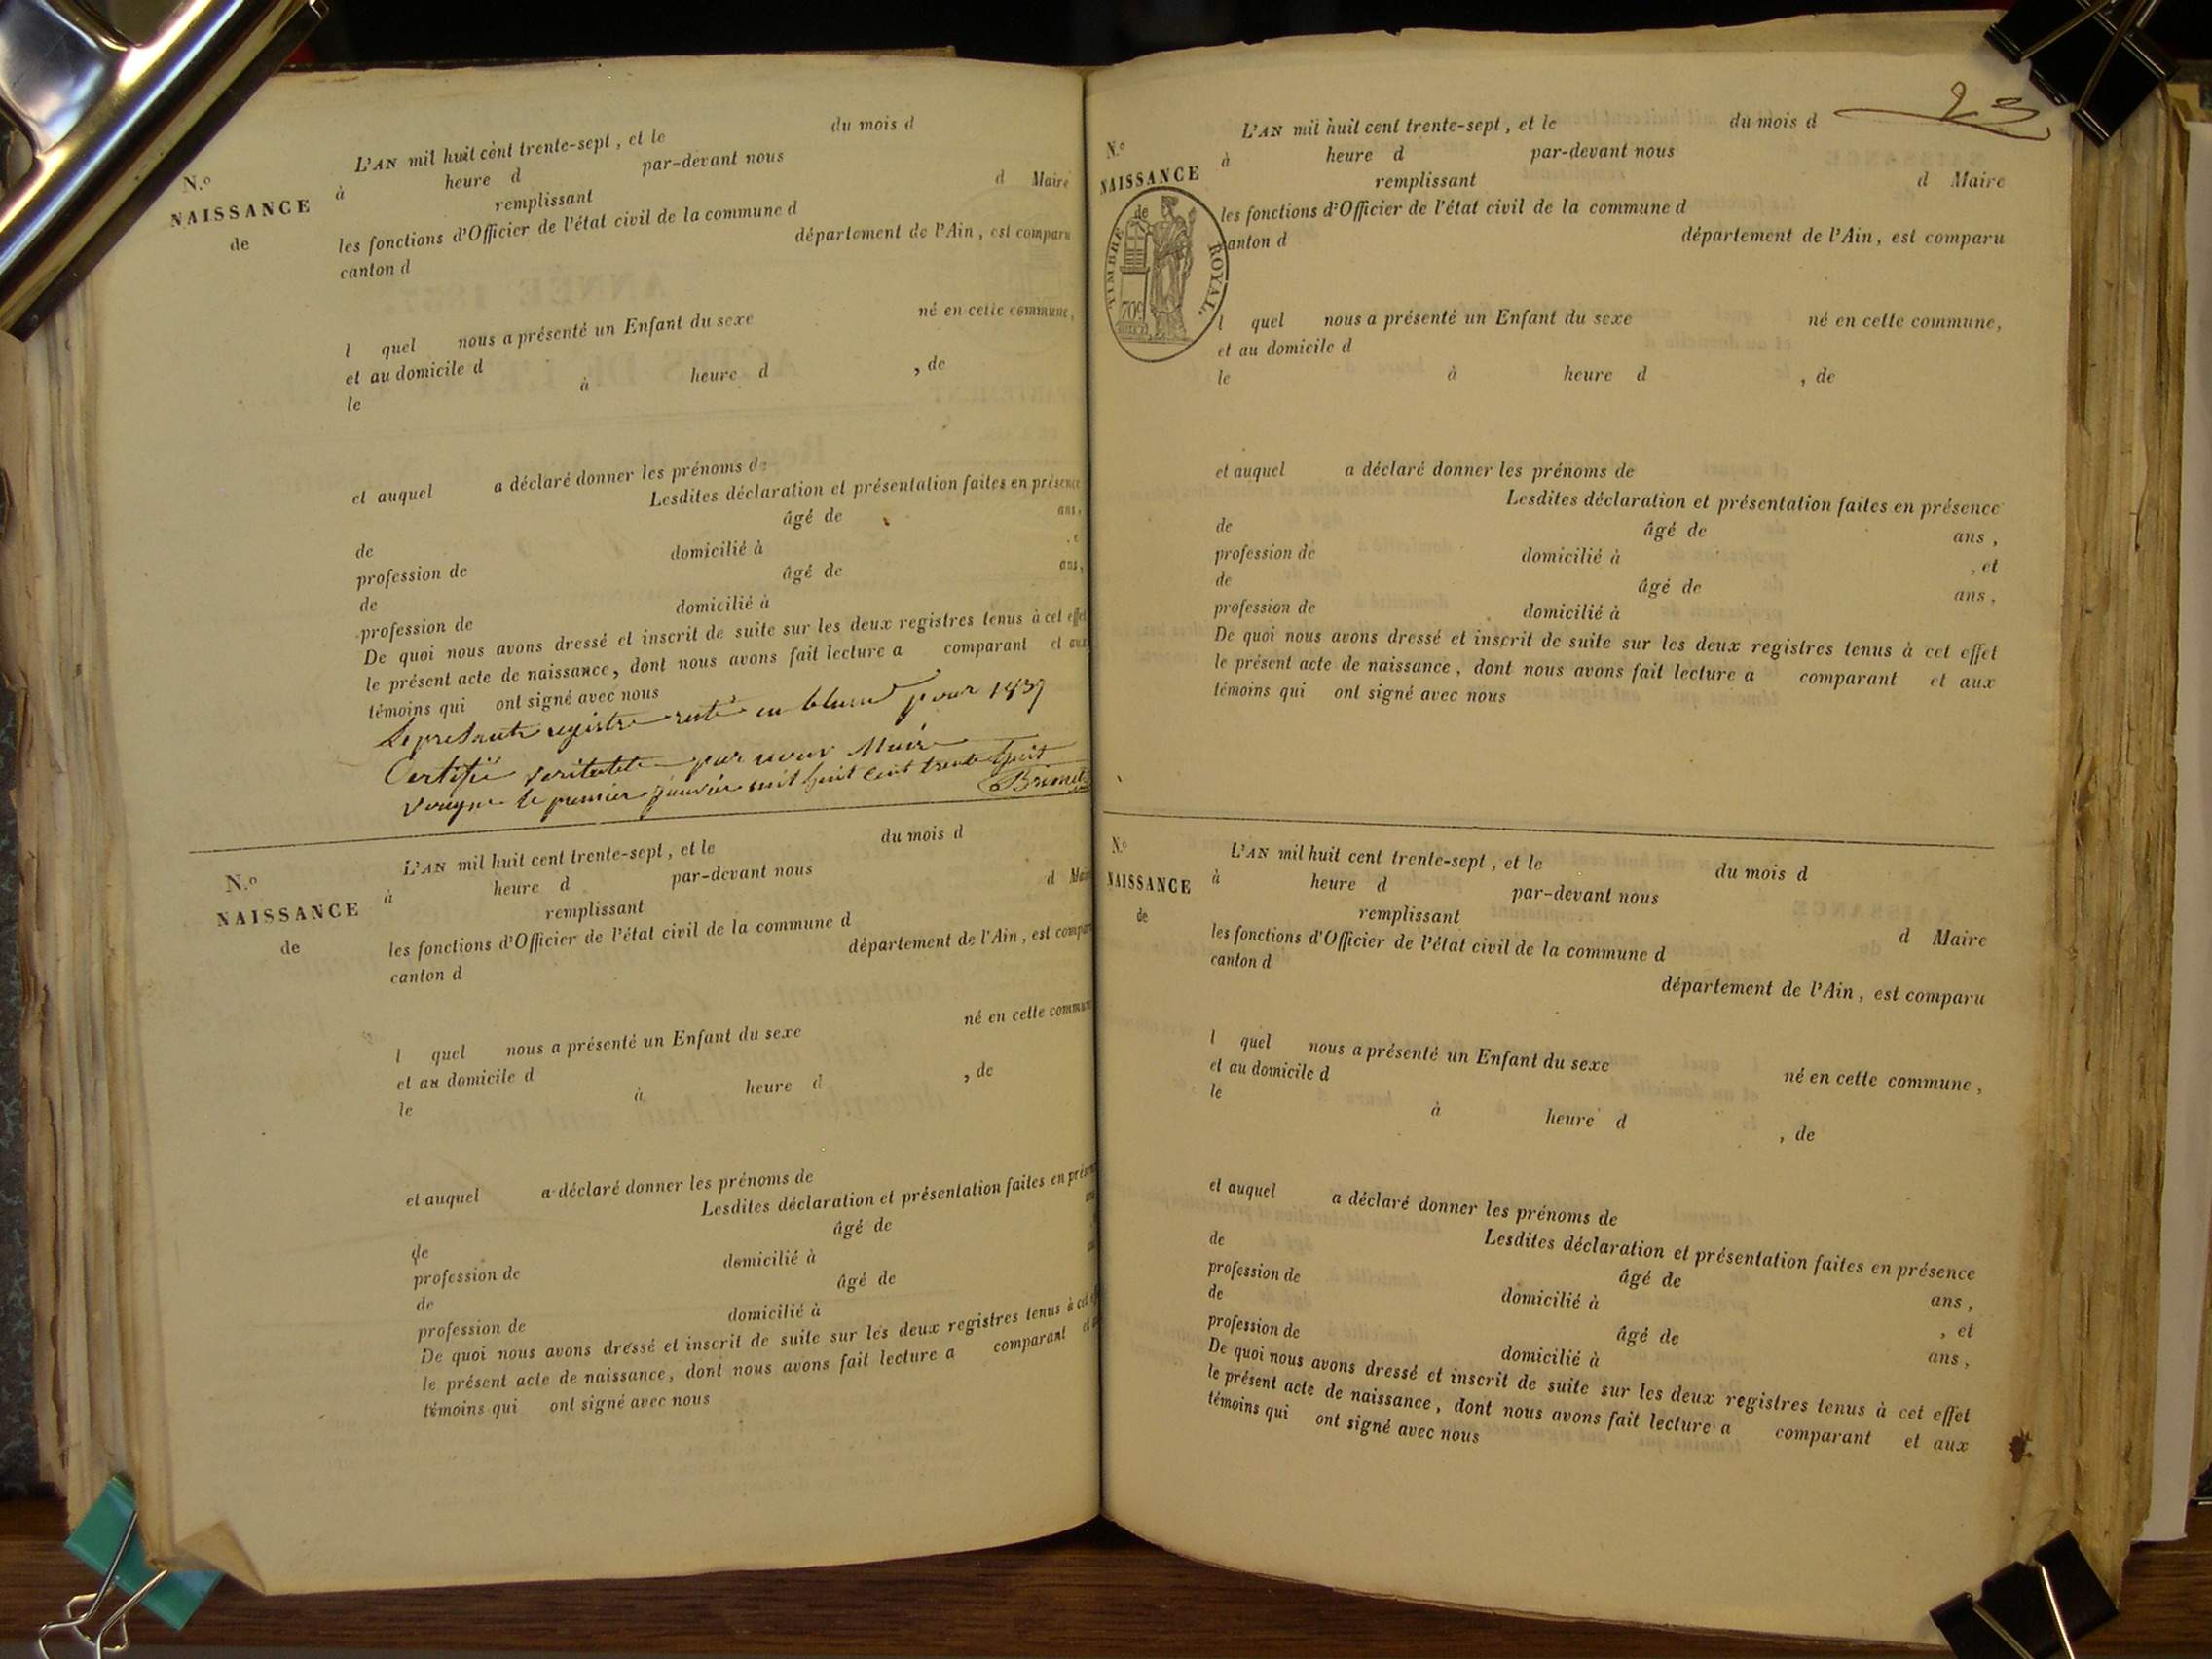 N.º
NAISSANCE
de
L'AN mil huit cent trente-sept, et le du mois d
à heure d par-devant nous
remplissant d Maire
les fonctions d'Officier de l'état civil de la commune d
canton d département de l'Ain, est comparu
l quel nous a présenté un Enfant du sexe né en cette commune,
et au domicile d
le à heure d , de
et auquel a déclaré donner les prénoms de
Lesdites déclaration et présentation faites en présence
de âgé de ans,
profession de domicilié à , e
de âgé de ans,
profession de domicilié à
De quoi nous avons dressé et inscrit de suite sur les deux registres tenus à cet effet
le présent acte de naissance, dont nous avons fait lecture a comparant et aux
témoins qui ont signé avec nous
Le registre resté en blanc pour 1837
Certifié par nous Maire
le premier janvier mil huit cent trente huit
N.º
NAISSANCE
de
L'AN mil huit cent trente-sept, et le du mois d
à heure d par-devant nous
remplissant d Mai
les fonctions d'Officier de l'état civil de la commune d
canton d département de l'Ain, est compar
l quel nous a présenté un Enfant du sexe né en cette commun
et au domicile d
le à heure d , de
et auquel a déclaré donner les prénoms de
Lesdites déclaration et présentation faites en présen
de âgé de
profession de domicilié à
de âgé de
profession de domicilié à
De quoi nous avons dressé et inscrit de suite sur les deux registres tenus à cet ef
le présent acte de naissance, dont nous avons fait lecture a comparant et a
témoins qui ont signé avec nous
23
N.º
NAISSANCE
de
TIMBRE ROYAL.
709
L'AN mil huit cent trente-sept, et le du mois d
à heure d par-devant nous
remplissant d Maire
les fonctions d'Officier de l'état civil de la commune d
canton d département de l'Ain, est comparu
l quel nous a présenté un Enfant du sexe né en cette commune,
et au domicile d
le à heure d , de
et auquel a déclaré donner les prénoms de
Lesdites déclaration et présentation faites en présence
de âgé de ans,
profession de domicilié à , et
de âgé de ans,
profession de domicilié à
De quoi nous avons dressé et inscrit de suite sur les deux registres tenus à cet effet
le présent acte de naissance, dont nous avons fait lecture a comparant et aux
témoins qui ont signé avec nous
N.º
NAISSANCE
de
L'AN mil huit cent trente-sept, et le du mois d
à heure d par-devant nous
remplissant d Maire
les fonctions d'Officier de l'état civil de la commune d
canton d département de l'Ain, est comparu
l quel nous a présenté un Enfant du sexe né en cette commune,
et au domicile d
le à heure d , de
et auquel a déclaré donner les prénoms de
Lesdites déclaration et présentation faites en présence
de âgé de ans,
profession de domicilié à , et
de âgé de ans,
profession de domicilié à
De quoi nous avons dressé et inscrit de suite sur les deux registres tenus à cet effet
le présent acte de naissance, dont nous avons fait lecture a comparant et aux
témoins qui ont signé avec nous